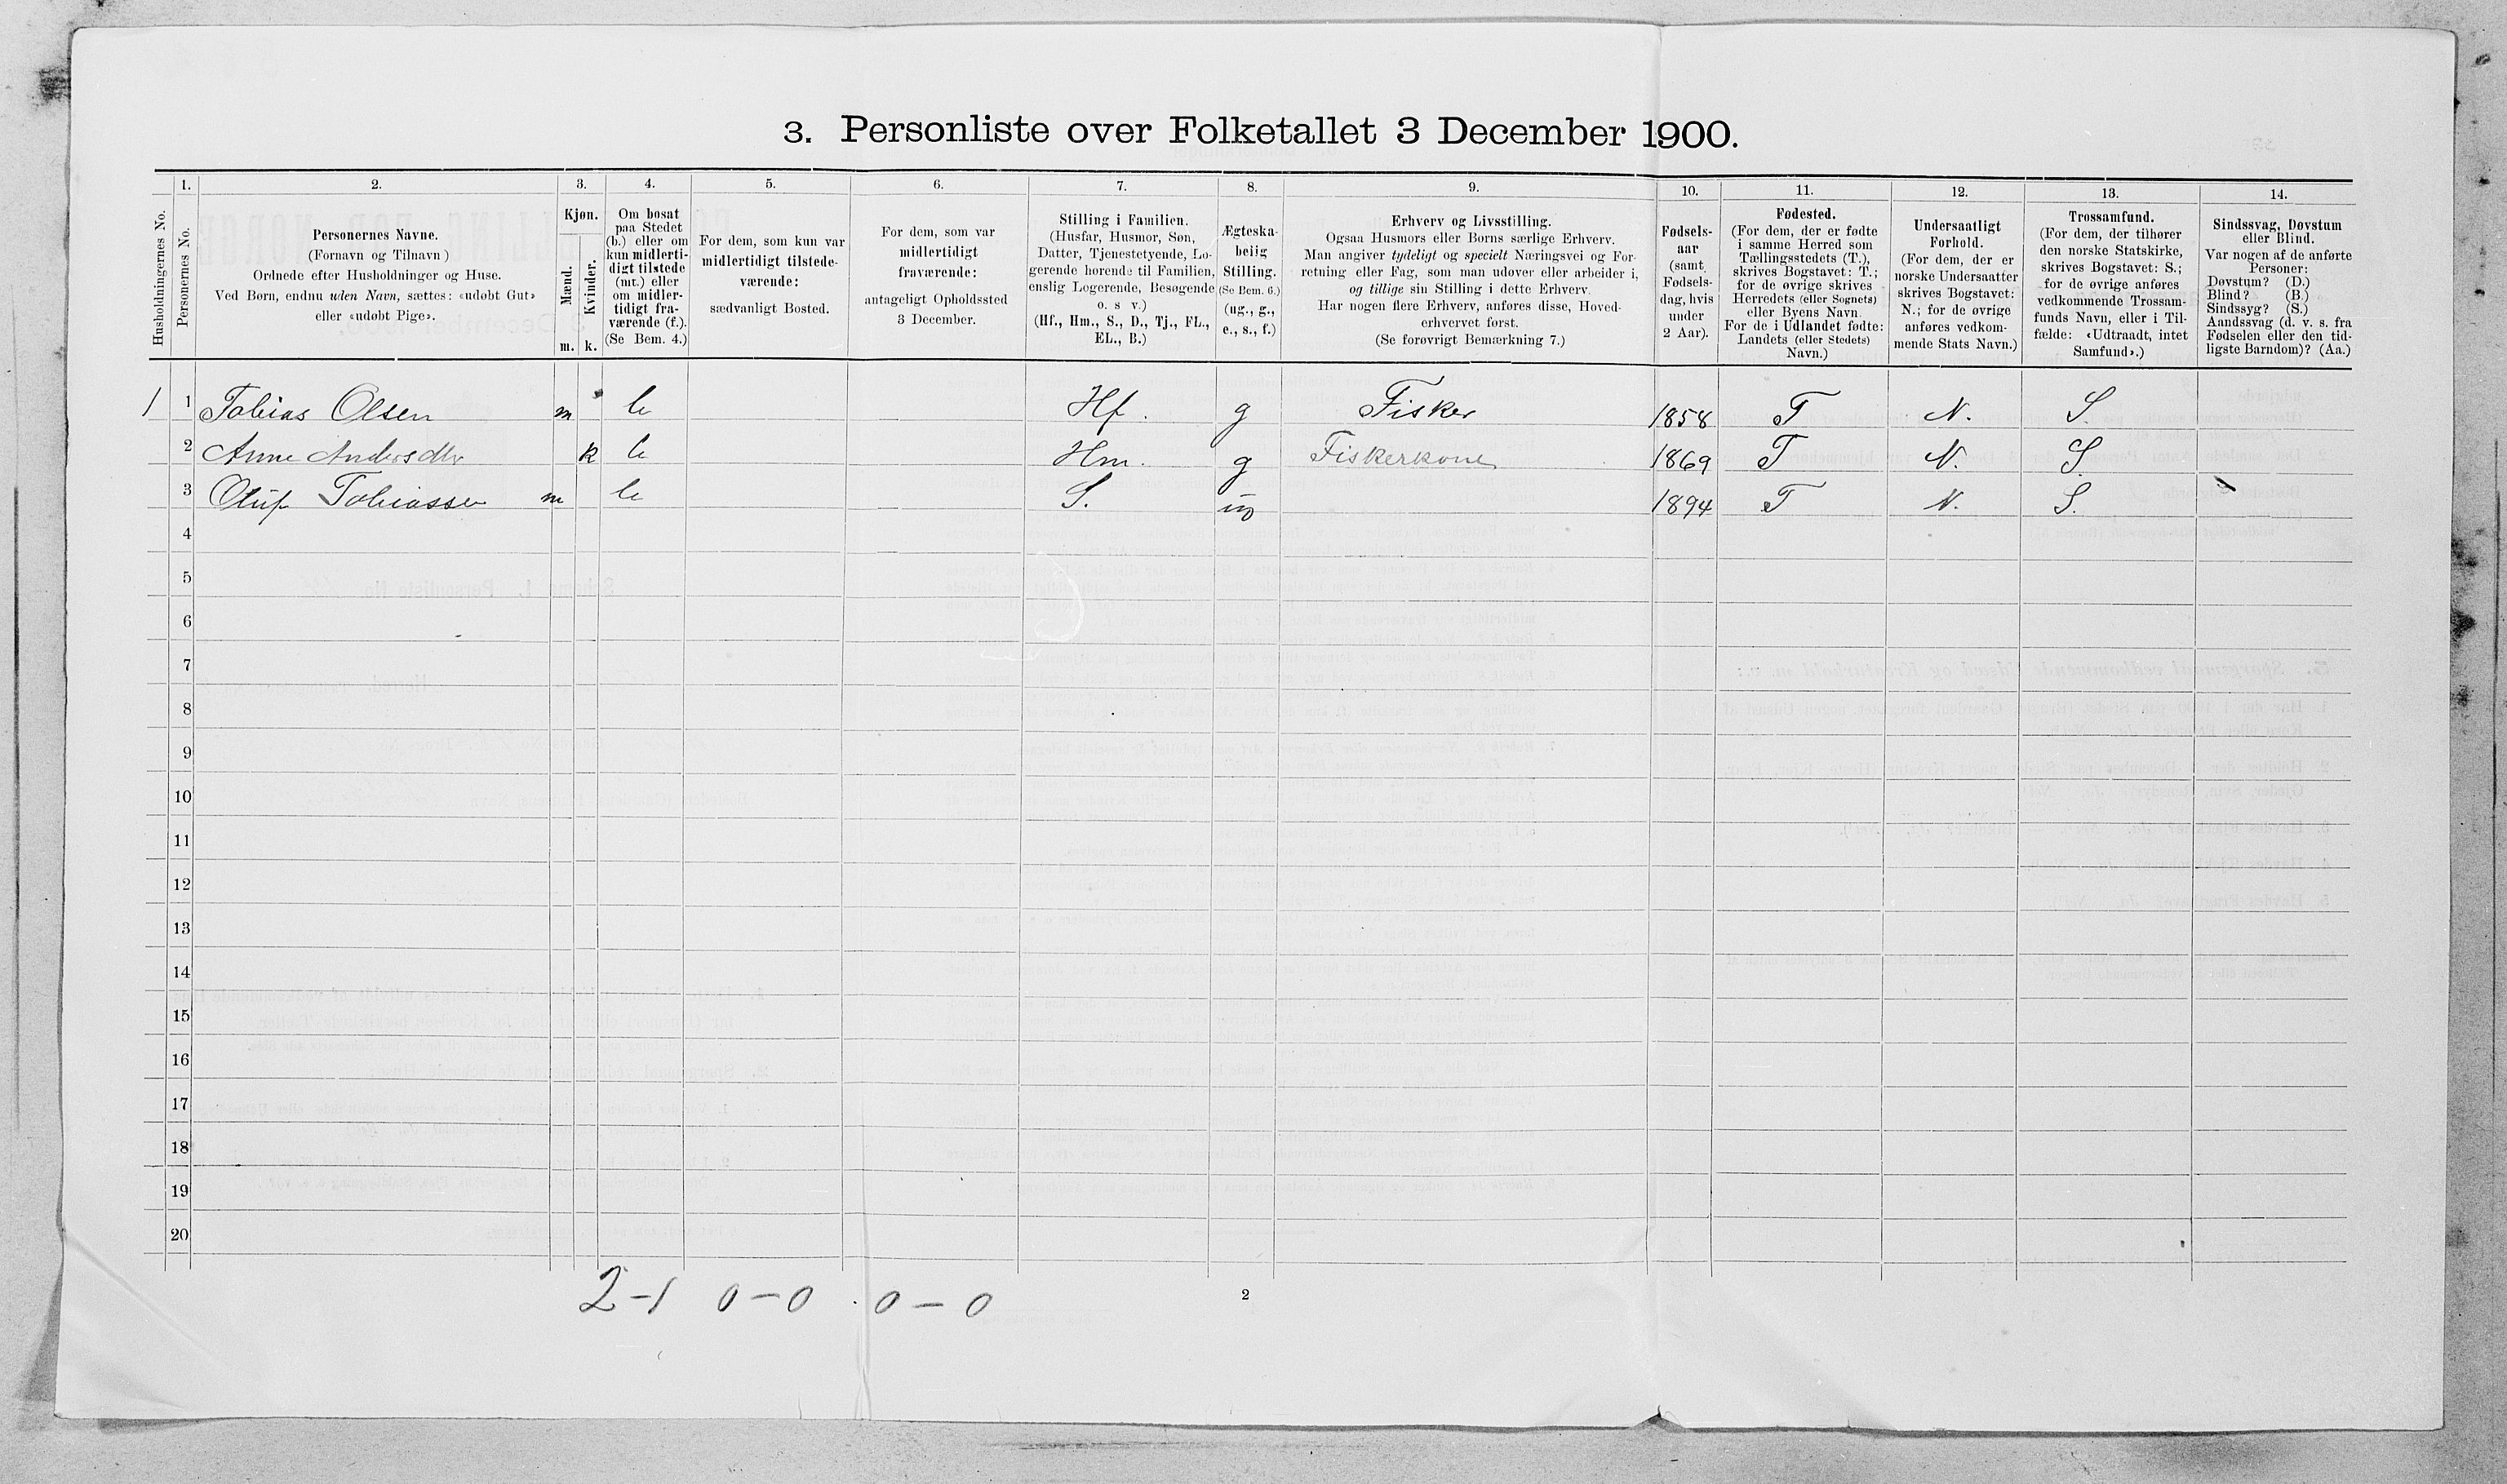 3. Personliste over Folketallet 3 December 1900.
Husholdningernes No.
1.
Personernes No.
2.
Personernes Navne.
(Fornavn og Tilnavn)
Ordnede efter Husholdninger og Huse.
Ved Børn, endnu uden Navn, sættes: «udøbt Gut»
eller «udøbt Pige».
3.
Kjøn.
Mænd.
m.
Kvinder.
k.
4.
Om bosat
paa Stedet
(b.) eller om
kun midlerti-
digt tilstede
(mt.) eller
om midler-
tidigt fra-
værende (f.).
(Se Bem. 4.)
5.
For dem, som kun var
midlertidigt tilstede-
værende:
sædvanligt Bosted.
6.
For dem, som var
midlertidigt
fraværende:
antageligt Opholdssted
3 December.
7.
Stilling i Familien.
(Husfar, Husmor, Søn,
Datter, Tjenestetyende, Lo-
gerende hørende til Familien,
enslig Logerende, Besøgende
o. s v.)
(Hf., Hm., S., D., Tj., FL.,
EL., B.)
8.
Ægteska-
belig
Stilling.
(Se Bem. 6.)
(ug., g.,
e., s., f.)
9.
Erhverv og Livsstilling.
Ogsaa Husmors eller Børns særlige Erhverv.
Man angiver tydeligt og specielt Næringsvei og For-
retning eller Fag, som man udøver eller arbeider i,
og tillige sin Stilling i dette Erhverv.
Har nogen flere Erhverv, anføres disse, Hoved-
erhvervet først.
(Se forøvrigt Bemærkning 7.)
10.
Fødsels-
aar
(samt
Fødsels-
dag, hvis
under
2 Aar).
11.
Fødested.
(For dem, der er fødte
i samme Herred som
Tællingsstedets (T.),
skrives Bogstavet: T.;
for de øvrige skrives
Herredets (eller Sognets)
eller Byens Navn.
For de i Udlandet fødte:
Landets (eller Stedets)
Navn.)
12.
Undersaatligt
Forhold.
(For dem, der er
norske Undersaatter
skrives Bogstavet:
N.; for de øvrige
anføres vedkom-
mende Stats Navn.)
13.
Trossamfund.
(For dem, der tilhører
den norske Statskirke,
skrives Bogstavet: S.;
for de øvrige anføres
vedkommende Trossam-
funds Navn, eller i Til-
fælde: «Udtraadt, intet
Samfund».)
14.
Sindssvag, Døvstum
eller Blind.
Var nogen af de anførte
Personer:
Døvstum? (D.)
Blind? (B.)
Sindssyg? (S.)
Aandssvag (d. v. s. fra
Fødselen eller den tid-
ligste Barndom)? (Aa.)
1 1 Tobias Olsen m b Hf. g Fisker 1858 T N. S.
2 Anne Andersdtr k b Hm. g Fiskerkone 1869 T N. S.
3 Oluf Tobiassen m b S. ug 1894 T N. S.
4
5
6
7
8
9
10
11
12
13
14
15
16
17
18
19
20
2-1 0-0 0-0
2